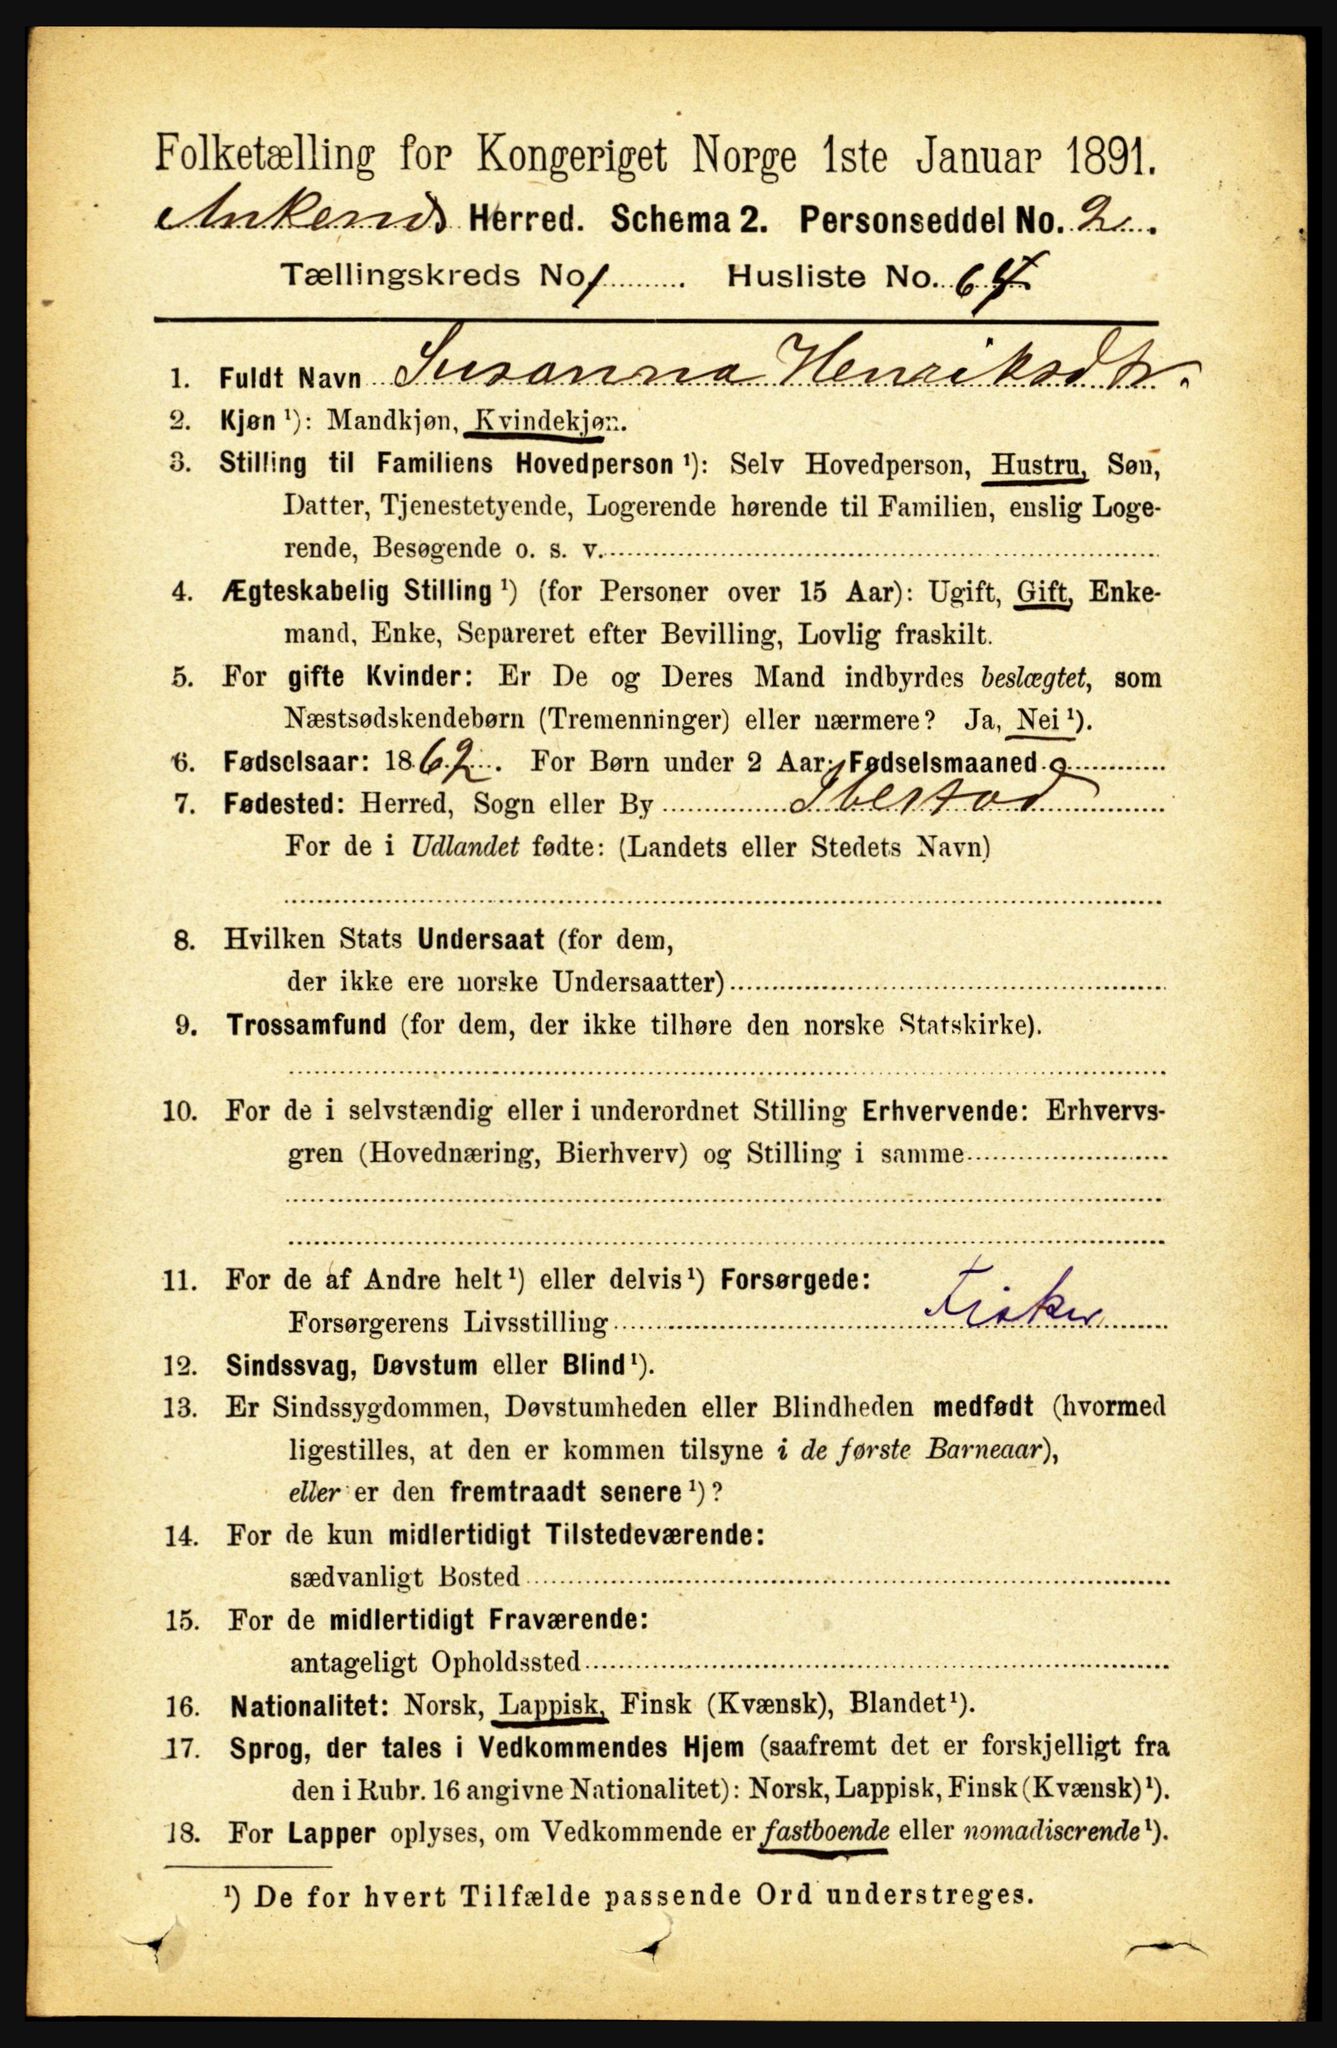 Folketælling for Kongeriget Norge 1ste Januar 1891.
Ankenes Herred. Schema 2. Personseddel No. 2.
Tællingskreds No 1. Husliste No. 64
1. Fuldt Navn Susanna Henriksdtr.
2. Kjøn ¹): Mandkjøn, Kvindekjøn.
3. Stilling til Familiens Hovedperson ¹): Selv Hovedperson, Hustru, Søn,
Datter, Tjenestetyende, Logerende hørende til Familien, enslig Loge-
rende, Besøgende o. s. v.
4. Ægteskabelig Stilling ¹) (for Personer over 15 Aar): Ugift, Gift, Enke-
mand, Enke, Separeret efter Bevilling, Lovlig fraskilt.
5. For gifte Kvinder: Er De og Deres Mand indbyrdes beslægtet, som
Næstsødskendebørn (Tremenninger) eller nærmere? Ja, Nei ¹).
6. Fødselsaar: 1862. For Børn under 2 Aar: Fødselsmaaned
7. Fødested: Herred, Sogn eller By Ibestad
For de i Udlandet fødte: (Landets eller Stedets Navn)
8. Hvilken Stats Undersaat (for dem,
der ikke ere norske Undersaatter)
9. Trossamfund (for dem, der ikke tilhøre den norske Statskirke).
10. For de i selvstændig eller i underordnet Stilling Erhvervende: Erhvervs-
gren (Hovednæring, Bierhverv) og Stilling i samme
11. For de af Andre helt ¹) eller delvis ¹) Forsørgede:
Forsørgerens Livsstilling Fisker
12. Sindssvag, Døvstum eller Blind ¹).
13. Er Sindssygdommen, Døvstumheden eller Blindheden medfødt (hvormed
ligestilles, at den er kommen tilsyne i de første Barneaar),
eller er den fremtraadt senere ¹)?
14. For de kun midlertidigt Tilstedeværende:
sædvanligt Bosted
15. For de midlertidigt Fraværende:
antageligt Opholdssted
16. Nationalitet: Norsk, Lappisk, Finsk (Kvænsk), Blandet ¹).
17. Sprog, der tales i Vedkommendes Hjem (saafremt det er forskjelligt fra
den i Rubr. 16 angivne Nationalitet): Norsk, Lappisk, Finsk (Kvænsk) ¹).
18. For Lapper oplyses, om Vedkommende er fastboende eller nomadiserende ¹).
¹) De for hvert Tilfælde passende Ord understreges.